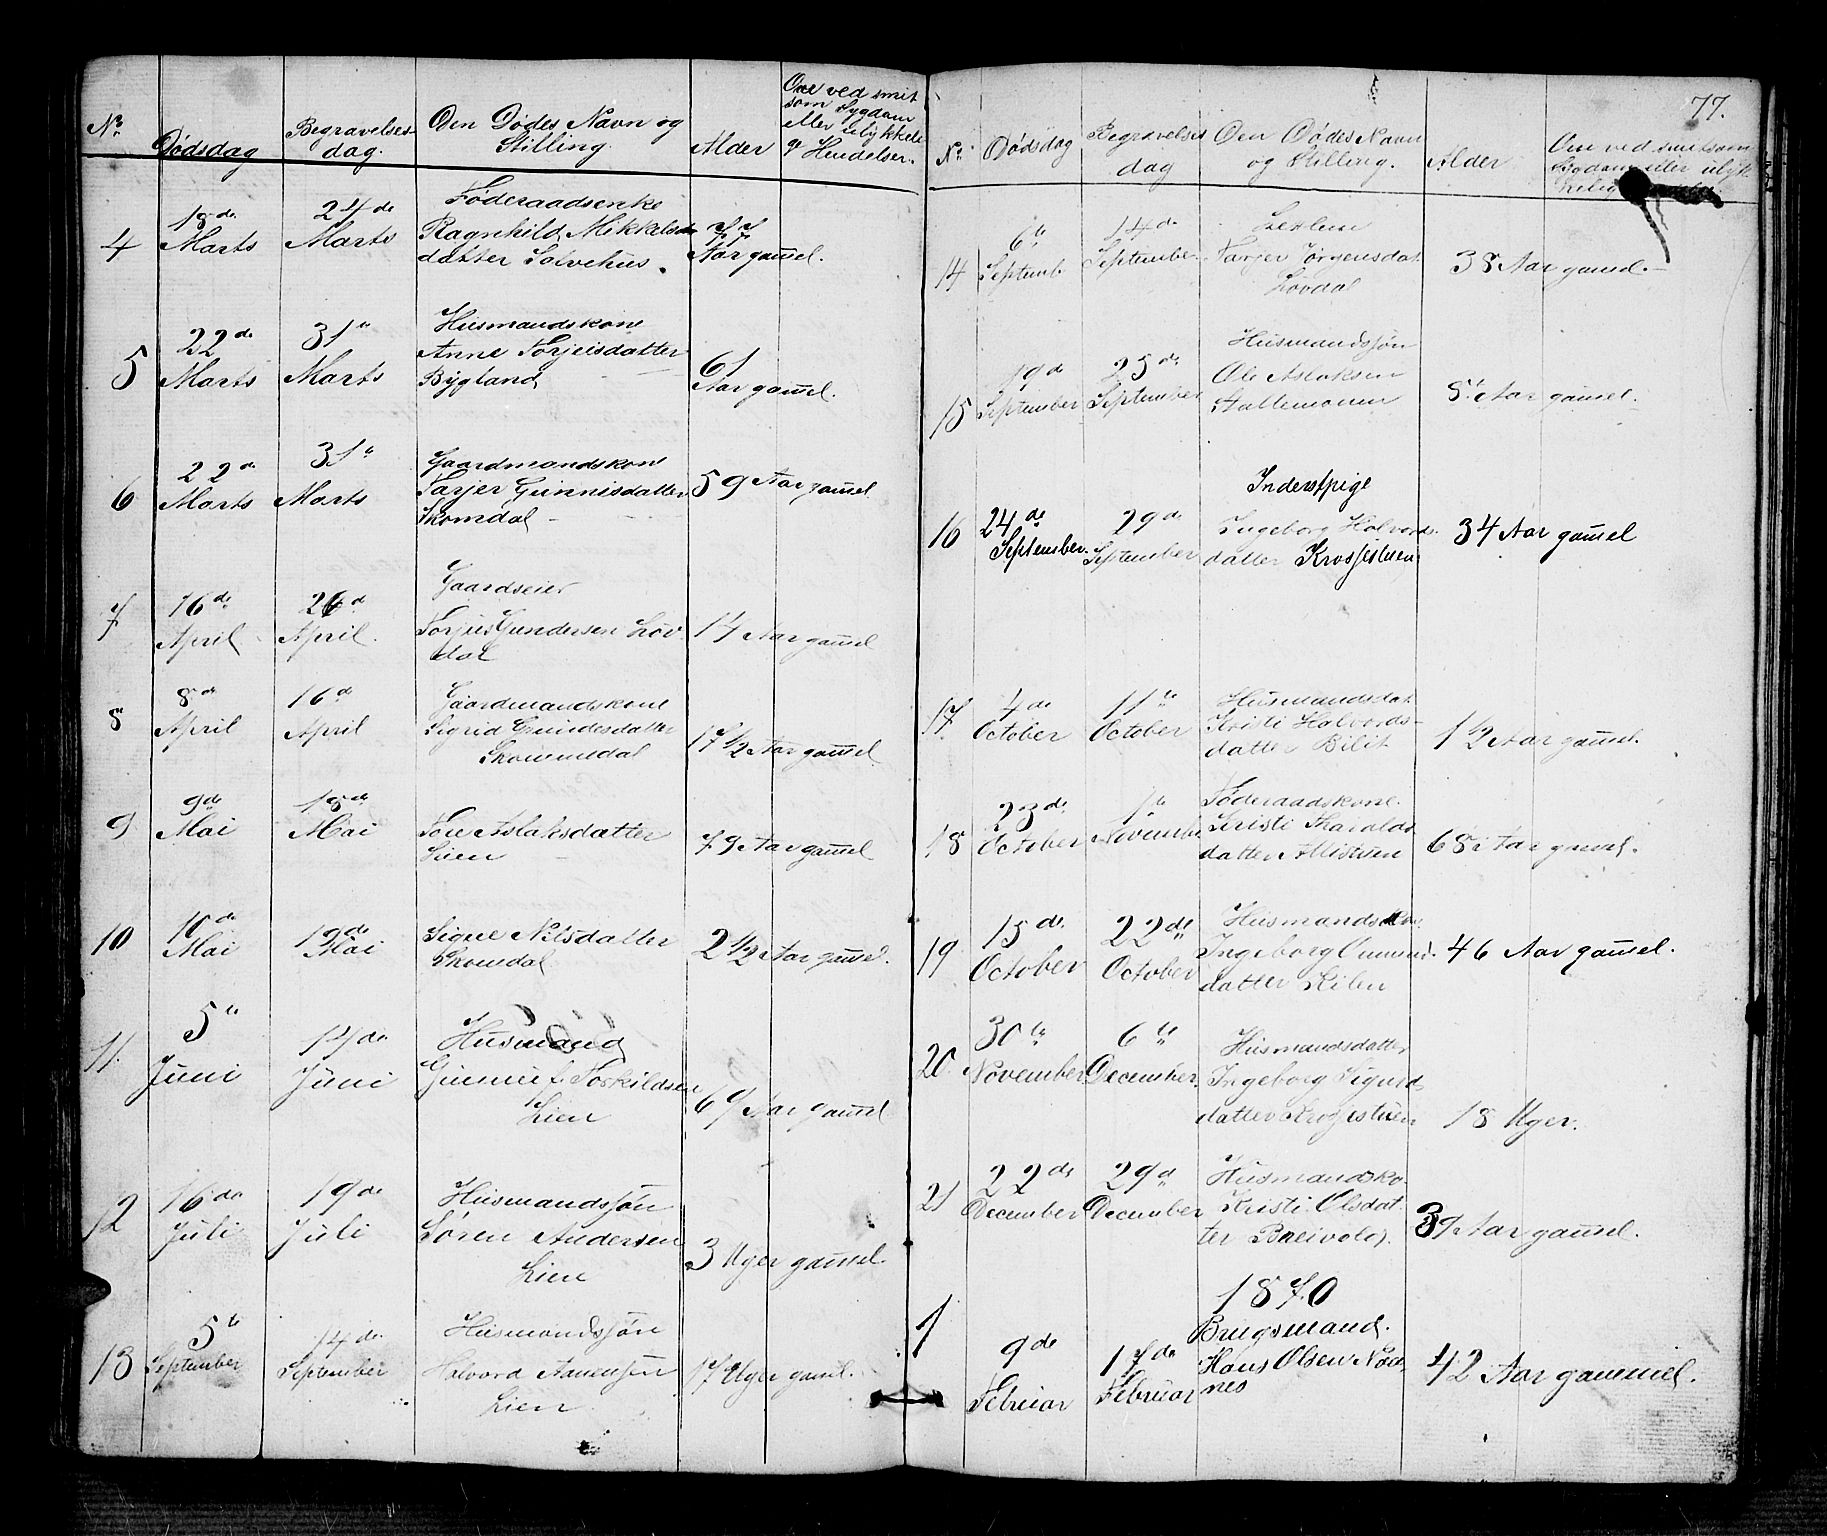 No.
Dødsdag
Begravelses-
dag.
Den Dødes Navn og
Stilling.
Alder
Om ved smit
som Sygdom
eller ulykkeli
ge Hendelser.
4
18de
Marts
24de
Marts
Føderaadsenke
Ragnhild Mikkels
datter Solvehus.
77
Aar gam̅el.
5
22de
Marts
31te
Marts
Husmandskone
Anne Torjeisdatter
Bygland
61
Aar gam̅el.
6
22de
Marts
31te
Marts
Gaardmandskone
Tarjer Gunnisdatter
Skomdal
59 Aar gam̅el
7
16de
April
26de
April.
Gaardseier
Torjus Gundersen Løv
dal
14 Aar gam̅el
8
8de
April
16de
April
Gaardmandskone
Sigrid
17 1/2 Aar gam̅el
9
9de
Mai
18de
Mai
Tone Aslaksdatter
Lien
79 Aar gam̅el
10
10de
Mai
19de
Mai
Signe Nilsdatter
Skomdal
2 1/2 Aar gam̅el.
11.
5te
Juni
14de
Juni
Husmand
Torkildsen
Lien
69 Aar gam̅el
12
16de
Juli
19de
Juli
Husmandssøn
Søren Andersen
Lien
3 Uger gam̅el.
13
5te
September
14de
September
Husmandssøn
Halvord Aanensøn
Lien
17 Uger gam̅el.
77.
No.
Dødsdag
Begravelses
dag
Den Dødes Navn
og Stilling.
Alder
Om ved smitsom
Sygdom eller ulyk
14
6te
Septemb
14de
September
Tarjer Jørgensdat
Løvdal
38 Aar gam̅el.
15
19de
September
25de
September
Husmandssøn
Ole Aslaksen
8 Aar gam̅el.
16
24de
September.
29de
September
Inderstpige
Ingeborg Halvords
datter Krossestuen
34 Aar gam̅el
17.
4de
October
11te
October
Husmandsdat
Kristi Halvords-
datter Bilit
12 Aar gam̅el.
18
23de
October
1te
November
Føderaadskone
Kristi Haralds
datter
68 Aar gam̅el.
19
15de
October
22de
October
Husmandsko
Ingeborg Omund
datter Kilen
46 Aar gam̅el.
20
30te
November
6te
December.
Husmandsdatter
Ingeborg Sigurd
datter Krossestuen
18 Uger.
21
22de
December
29de
December
Husmandsko
Kristi Olsdat
ter Breivold.
39 Aar gam̅el.
1870
1
9de
Februar
17de
Februar
Brugsmand.
Hans Olsen Nød
nes
42 Aar gammel.